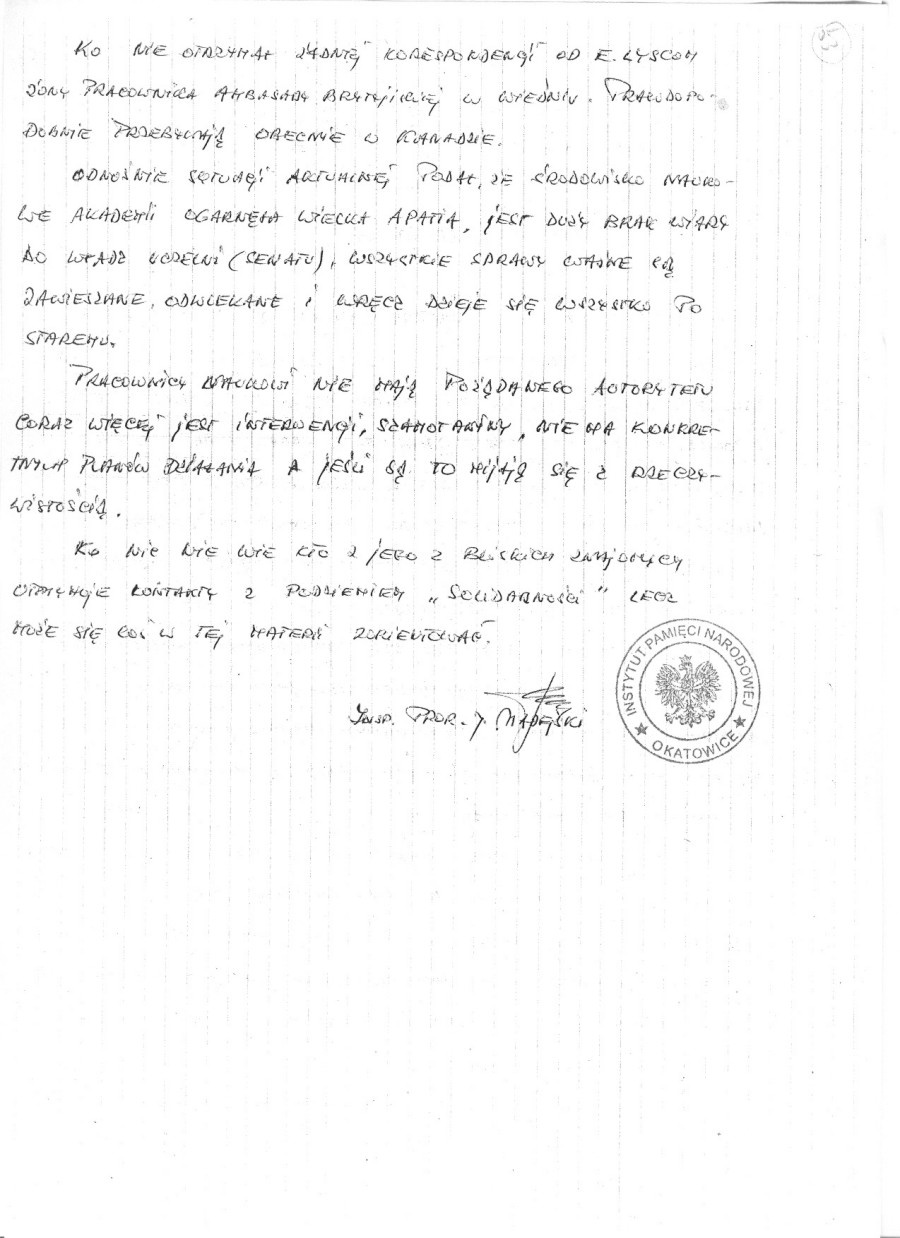 53
KO NIE OTRZYMAŁ ŻADNEJ KORESPONDENCJI OD E. LYSCOM
ŻONY PRACOWNIKA AMBASADY BRYTYJSKIEJ W WIEDNIU. PRAWDOPO-
DOBNIE PRZEBYWAJĄ OBECNIE W KANADZIE.
ODNOŚNIE SYTUACJI AKTUALNEJ PODAŁ, ŻE ŚRODOWISKO NAUKO-
WE AKADEMII OGARNĘŁA WIELKA APATIA, JEST DUŻY BRAK WIARY
DO WŁADZ UCZELNI (SENATU), WSZYSTKIE SPRAWY WAŻNE SĄ
ZAWIESZANE, ODWLEKANE I WRĘCZ DZIEJE SIĘ WSZYSTKO PO
STAREMU.
PRACOWNICY NAUKOWI NIE MAJĄ POŻĄDANEGO AUTORYTETU
CORAZ WIĘCEJ JEST INTERWENCJI, SZAMOTANINY, NIE MA KONKRE-
TNYCH PLANÓW DZIAŁANIA A JEŚLI SĄ TO MIJAJĄ SIĘ Z RZECZY-
WISTOŚCIĄ.
KO NIC NIE WIE KTO Z JEGO Z BLISKICH ZNAJOMYCH
UTRZYMUJE KONTAKTY Z PODZIEMIEM „SOLIDARNOŚCI" LECZ
MOŻE SIĘ COŚ W TEJ MATERII ZORIENTOWAĆ.
INSP. POR. J.
INSTYTUT PAMIĘCI NARODOWEJ
OKATOWICE